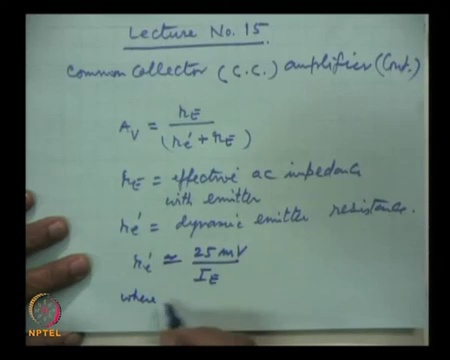 Lecture No. 15.
Common Collector (C.C.) amplifier (Cont.)
A_V = r_E / (r_e' + r_E)
r_E = effective ac impedance
with emitter
r_e' = dynamic emitter resistance.
r_e' ≃ 25 mV / I_E
where
NPTEL